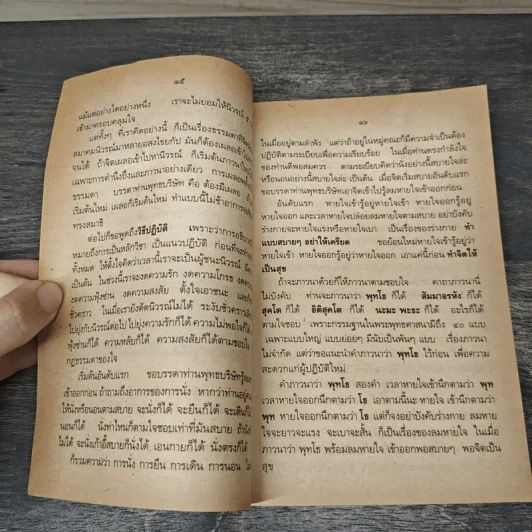 ๑๕
แม้แต่อย่างใดอย่างหนึ่ง เราจะไม่ยอมให้นิวรณ์
เข้ามาครอบคลุมใจ
แต่ทั้งๆ ที่เราคิดอย่างนี้ ก็เป็นเรื่องธรรมดาที่จิต
สมาคมนิวรณ์มาหลายอสงไขยกัป มันก็ต้องเผลอเข้าไป
จนได้ ถ้าจิตเผลอเข้าไปหานิวรณ์ ก็เริ่มต้นภาวนาใหม่
เฉพาะการคำนึงถึงและภาวนาอย่างเดียว การเผลอ
ธรรมดา บรรดาท่านพุทธบริษัท คือ ต้องมีเผลอ
เริ่มต้นใหม่ เผลอก็เริ่มต้นใหม่ ทำแบบนี้ไม่ช้าอาการ
ทรงสมาธิ
ต่อไปก็ขอพูดถึงวิธีปฏิบัติ เพราะว่าการอธิบาย
หมายถึงการเป็นหลักวิชา เป็นแนวปฏิบัติ ก่อนที่จะ
ทั้งหมด ให้ตั้งใจคิดว่าเวลานี้เราจะเป็นผู้ชนะนิวรณ์
เป็นต้น ในช่วงนี้เราจะงดความรัก งดความโกรธ งด
งดความฟุ้งซ่าน งดความสงสัย ตั้งใจเอาชนะ และ
ชั่วคราว ในเมื่อเรายังตัดนิวรณ์ไม่ได้ ระงับชั่วคราว
ไปยุ่งกับนิวรณ์ต่อไป ไปยุ่งความรักก็ได้ ความไม่พอใจก็ได้
ฟุ้งซ่านก็ได้ ความหลับก็ได้ ความสงสัยก็ได้ตามชอบใจ
กฎธรรมดาของใจ
เริ่มต้นอันดับแรก ขอบรรดาท่านพุทธบริษัท
เข้าออกก่อน ถ้าถามถึงอาการของการนั่ง หากว่าท่านอยู่
ให้นั่งหรือนอนตามสบาย จะนั่งก็ได้ จะยืนก็ได้ จะเดินก็ได้
นอนก็ได้ นั่งท่าไหนก็ตามใจชอบเท่าที่มันสบาย ถ้านั่ง
ไม่ได้ จะนั่งเก้าอี้สบายก็นั่งได้ เอนกายก็ได้ นั่งตรงก็ได้
ก็รวมความว่า การนั่ง การยืน การเดิน การนอน
๑๖
ในเมื่ออยู่ตามลำพัง แต่ว่าถ้าอยู่ในหมู่คณะก็มีความจำเป็นต้อง
ปฏิบัติตามระเบียบเพื่อความเรียบร้อย ในเมื่อท่านทรงกำลังใจ
ของท่านดีพอสมควร ตามระเบียบคิดว่านั่งอย่างนี้สบายใจล่ะ
หรือนอนอย่างนี้สบายใจล่ะ เป็นต้น เมื่อจิตเริ่มสบายอันดับแรก
ขอบรรดาท่านพุทธบริษัทเอาจิตเข้าไปรู้ลมหายใจเข้าออกก่อน
อันดับแรก หายใจเข้ารู้อยู่หายใจเข้า หายใจออกรู้อยู่
หายใจออก และเวลาหายใจปล่อยลมหายใจตามสบาย อย่าบังคับ
ร่างกายจะหายใจแรงหรือหายใจเบา เป็นเรื่องของร่างกาย ทำ
แบบสบายๆ อย่าให้เครียด ขอย้อนใหม่หายใจเข้ารู้อยู่ว่า
หายใจเข้า หายใจออกรู้อยู่ว่าหายใจออก เอาแค่นี้ก่อน ทำจิตให้
เป็นสุข
ถ้าจะภาวนาด้วยก็ให้ภาวนาตามชอบใจ คาถาภาวนานี้
ไม่บังคับ ท่านจะภาวนาว่า พุทโธ ก็ได้ สัมมาอรหัง ก็ได้
สุคโต ก็ได้ อิติสุคโต ก็ได้ นะมะ พะธะ ก็ได้ อะไรก็ได้
ตามใจชอบ เพราะกรรมฐานในพระพุทธศาสนามีถึง ๔๐ แบบ
เฉพาะแบบใหญ่ แบบย่อยๆ มีนับเป็นพันๆ แบบ เรื่องภาวนา
ไม่จำกัด แต่ว่าขอแนะนำคำภาวนาว่า พุทโธ ไว้ก่อน เพื่อความ
สะดวกแก่ผู้ปฏิบัติใหม่
คำภาวนาว่า พุทโธ สองคำ เวลาหายใจเข้านึกตามว่า พุท
เวลาหายใจออกนึกตามว่า โธ เอาตามนี้นะ หายใจเข้านึกตามว่า
พุท หายใจออกนึกตามว่า โธ แต่ก็จงอย่าบังคับร่างกาย ลมหาย
ใจจะยาวจะแรง จะเบาจะสั้น ก็เป็นเรื่องของลมหายใจ ในเมื่อ
ภาวนาว่า พุทโธ พร้อมลมหายใจ เข้าออกพอสบายๆ พอจิตเป็น
สุข